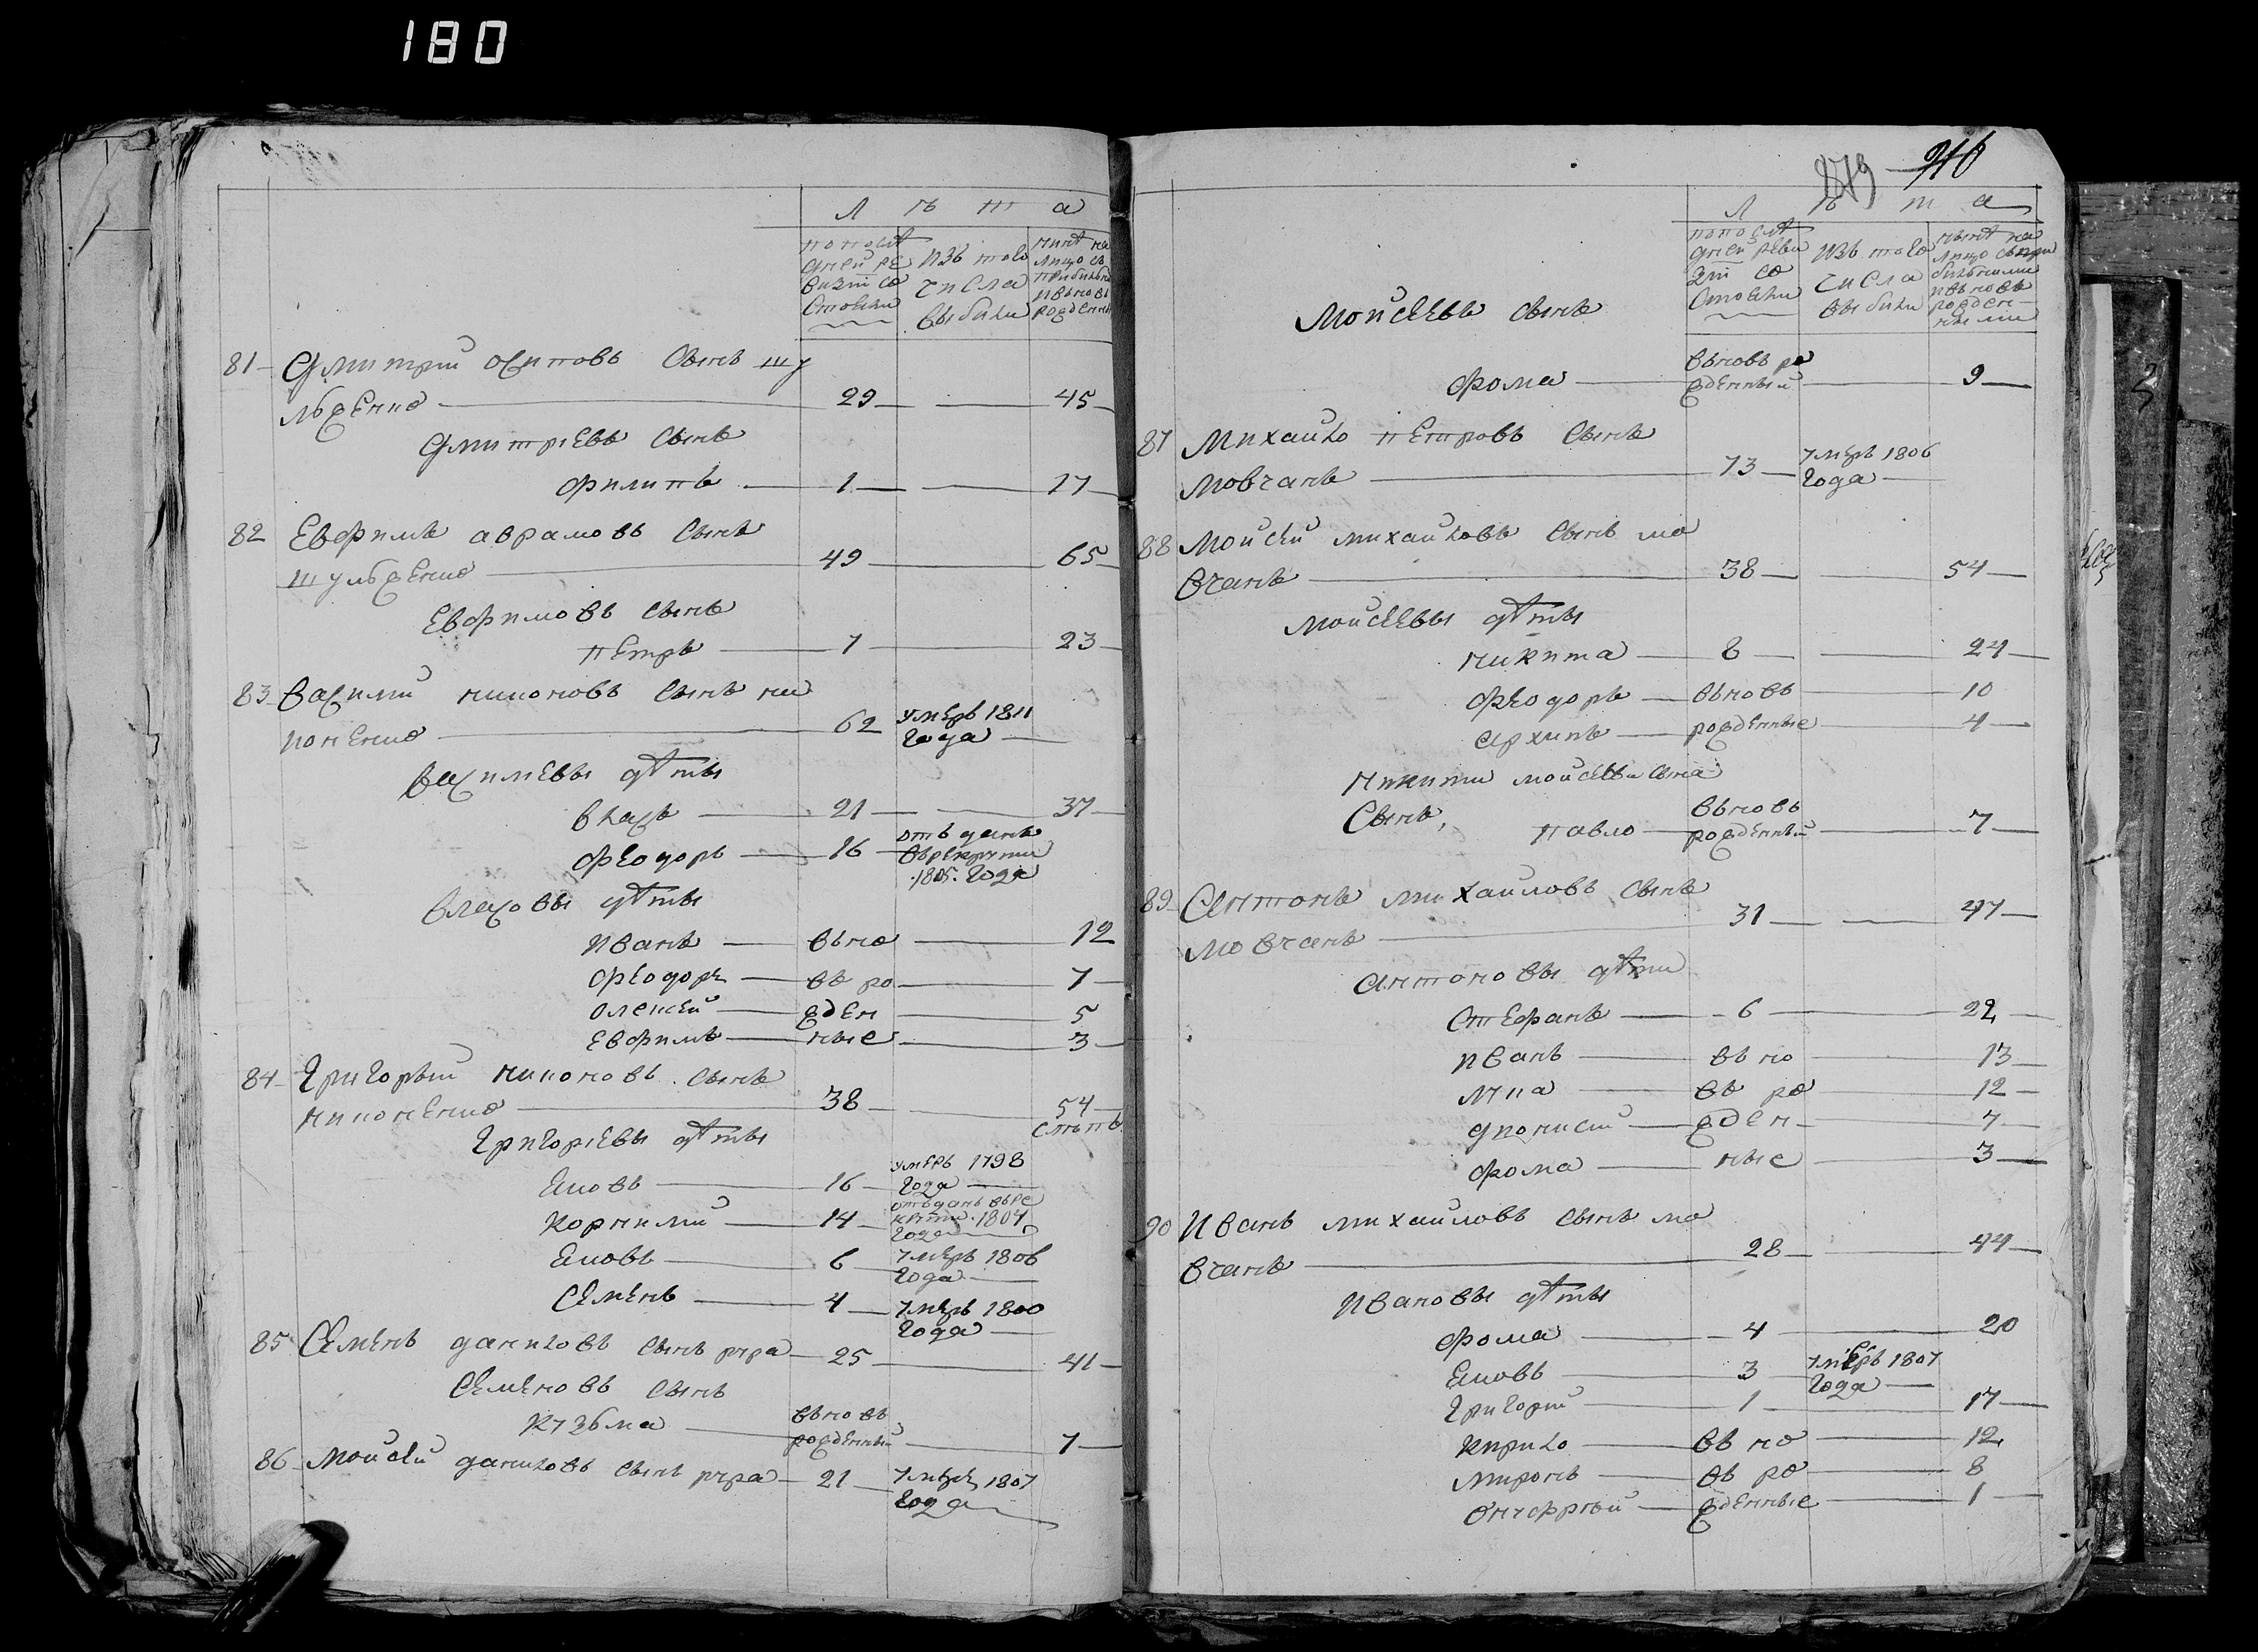 180
Л ѣ т а
по послѣ
дней ре
визiи со
стояли
изъ того
числа
выбыли
нынѣ на
лицо съ
прибылы
и вьновь
рожденны
81 Дмитрий осиповъ сынъ шу
льженко 29 45
Дмитрiевъ сынъ
филипъ 1 17
82 Евфимъ аврамовъ сынъ
шульженко 49 65
Евфимовъ сынъ
петръ 7 23
83 Василий никоновъ сынъ ни
коненко 62 умеръ 1811
года
василиевы дѣти
власъ 21 37
феодоръ 16 отъданъ
въ рекруты
1805. года
власовы дѣти
иванъ вьно 12
феодоръ въ ро 7
олексей жден 5
евфимъ ные 3
84 Григорий никоновъ сынъ
никоненко 38 54
слѣпъ
Григориевы дѣти
яковъ 16 умеръ 1798
года
корнилий 14 отъданъ въ ре
круты 1804
года
яковъ 6 умеръ 1806
года
семенъ 4 умеръ 1800
года
85 Семенъ даниловъ сынъ рура 25 41
Семеновъ сынъ
кузьма вьновь
рожденный 7
86 Мойсей даниловъ сынъ рура 21 умеръ 1807
года
279 216
Л ѣ т а
по послѣ
дней реви
зiи со
стояли
изъ того
числа
выбыли
нынѣ на
лицо съ при
былыми
и вьновь
рожден
ными
Мойсеевъ сынъ
фома вьновь ро
жденный 9
87 Михайло петровъ сынъ
мовчанъ 73 умеръ 1806
года
88 Мойсей михайловъ сынъ мо
вчанъ 38 54
мойсеевы дѣти
никита 8 24
феодоръ вьновь 10
архипъ рожденные 4
никиты мойсеева сына
сынъ, павло вьновь
рожденный 7
89 Антонъ михайловъ сынъ
мовчанъ 31 47
антоновы дѣти
стефанъ 6 22
иванъ вьно 13
лука въ ро 12
дионисий жден 7
фома ные 3
90 Иванъ михайловъ сынъ мо
вчанъ 28 44
ивановы дѣти
фома 4 20
яковъ 3 умеръ 1807
года
григорий 1 17
кирило вьно 12
миронъ въ ро 8
онуфрий жденные 1